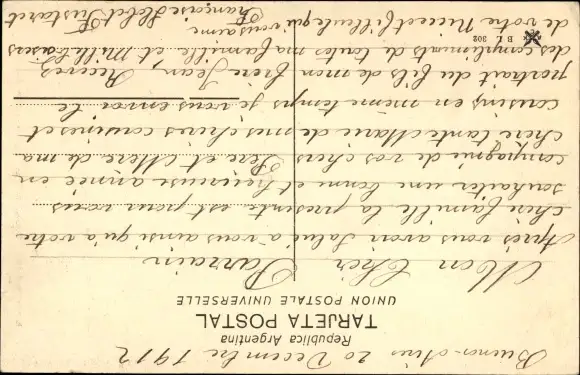 Buenos-Aires 20 Decembre 1912
Republica Argentina
TARJETA POSTAL
UNION POSTALE UNIVERSELLE
Mon Cher Parrain
Après vous avoir salué a vous ainsi qu'a votre
chère famille la presente est pour vous
souhaiter une bonne et heureuse année en
compagnie de vos chers Père et Mère de ma
chère tante Marie de mes chères cousines et
cousins en même temps je vous envoi le
portrait du fils de mon frère Jean, Recevez
des compliments de toutes ma famille et Mille baisers
de votre Niece et filleule qui vous aime
Françoise
B.F. 302